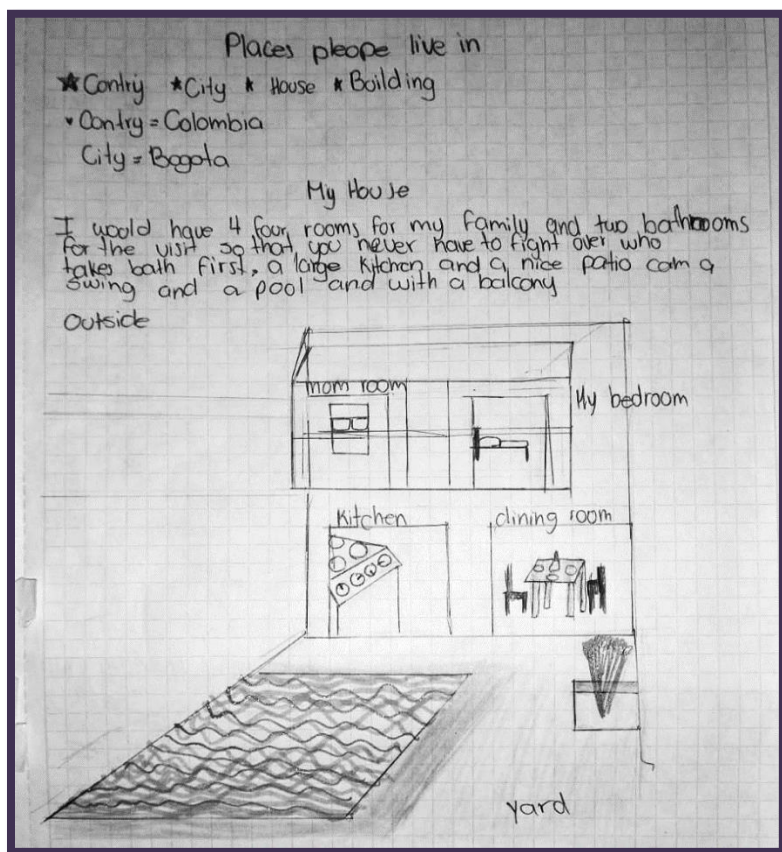 Places pleope live in
★ Contry ★ City ★ House ★ Building
• Contry = Colombia
City = Bogota
My House
I woold have 4 four rooms for my family and two bathrooms
for the visit so that you never have to fight over who
takes bath first, a large kitchen and a nice patio cam a
swing and a pool and with a balcony
Outside
mom room
My bedroom
Kitchen
dining room
yard